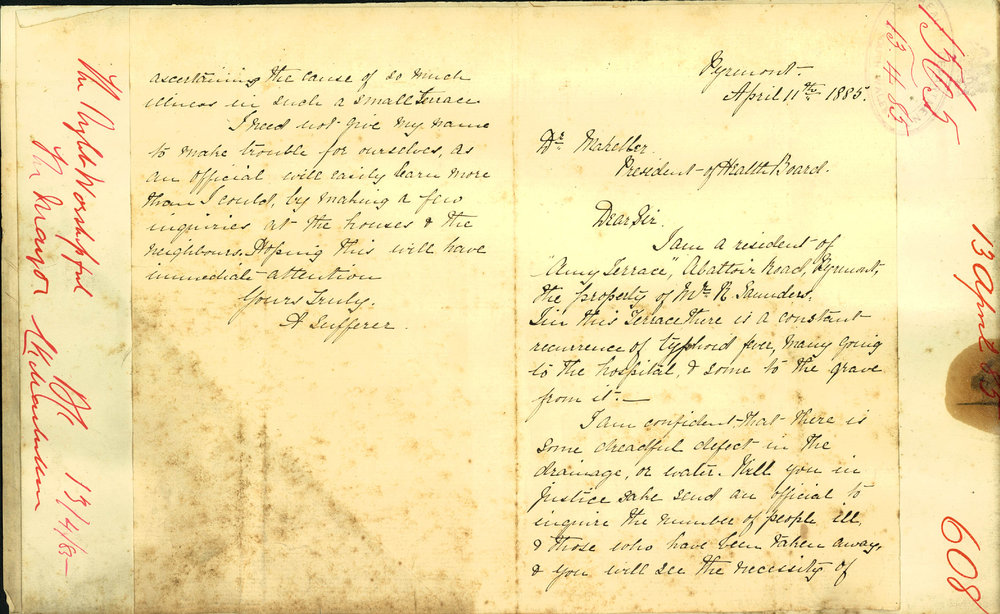 Pyrmont.
April 11th 1885.
Dr Makellar.
President of Health Board.
Dear Sir.
I am a resident of
"Amy Terrace", Abattoir Road, Pyrmont,
the property of Mr R. Saunders.
In this Terrace there is a constant
recurrence of typhoid fever, many going
to the hospital, & some to the grave
from it.—
I am confident that there is
some dreadful defect in the
drainage, or water. Will you in
Justice sake send an official to
inquire the number of people ill,
& those who have been taken away,
& you will see the necessity of
ascertaining the cause of so much
illness in such a small Terrace
I need not give my name
to make trouble for ourselves, as
an official will easily learn more
than I could, by making a few
inquiries at the houses & the
neighbours. Hoping this will have
immediate attention
Yours Truly.
A Sufferer.
The Right Worshipful
The Mayor
13/4/85
13 4 85
13 April 85
608